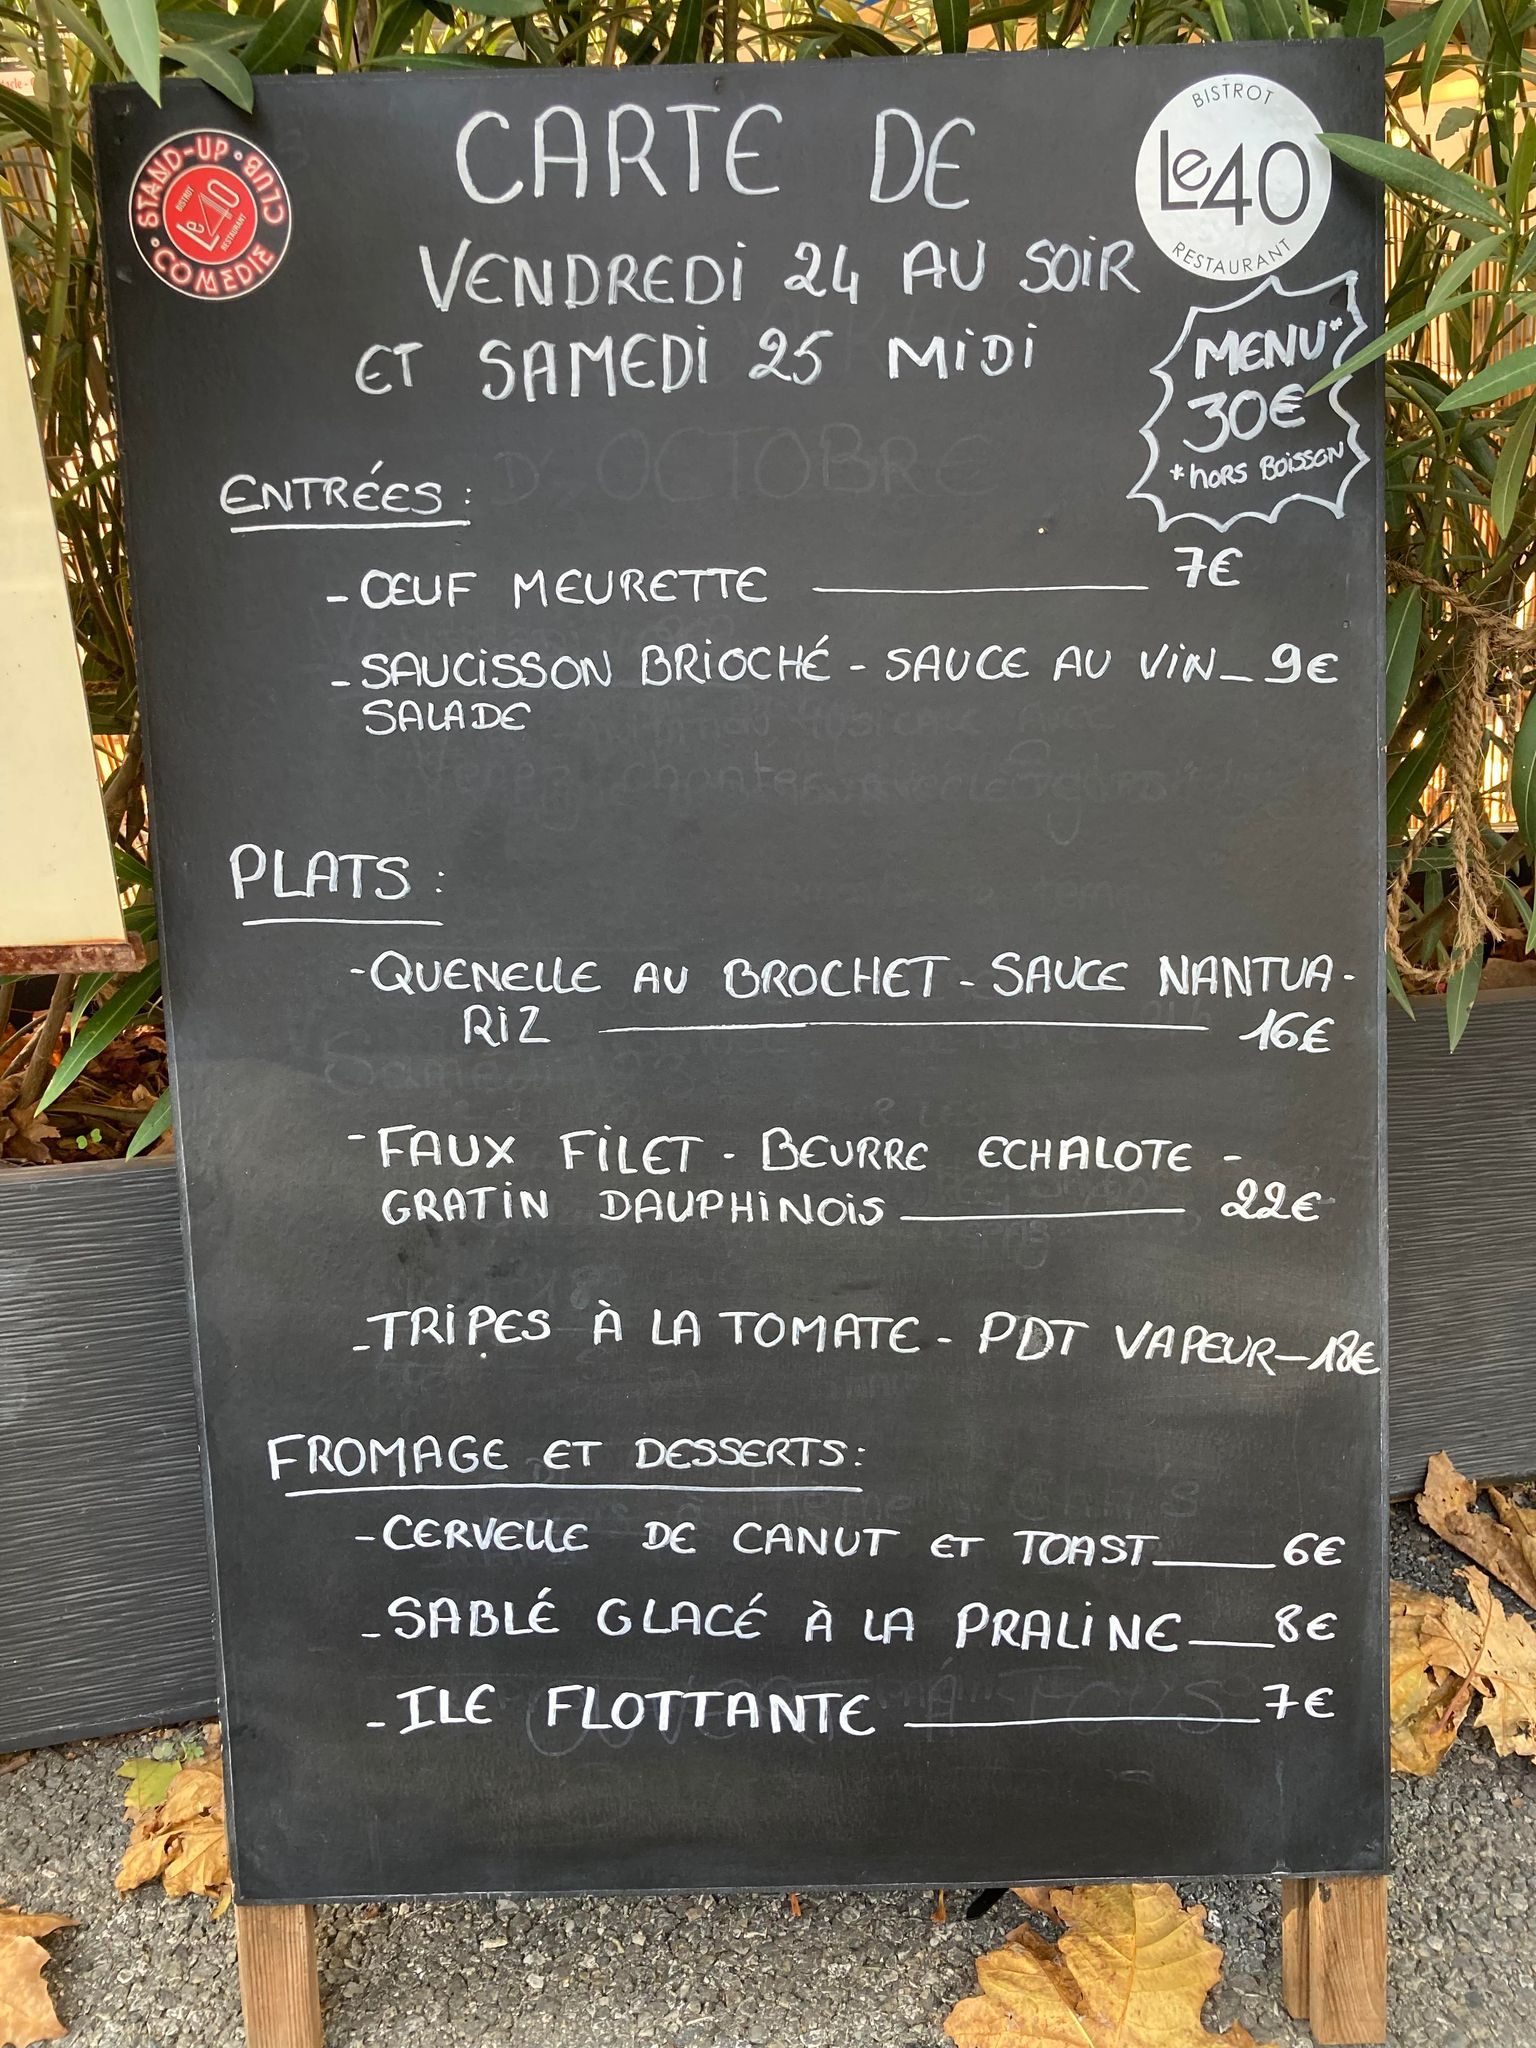 CARTE DE
VENDREDI 24 AU SOIR
ET SAMEDI 25 MIDI
STAND-UP • CLUB • COMEDIE •
BISTROT
Le 40
RESTAURANT
BISTROT
Le 40
RESTAURANT
MENU*
30€
*HORS BOISSON
D'OCTOBRE
ENTRÉES :
- ŒUF MEURETTE 7€
- SAUCISSON BRIOCHÉ - SAUCE AU VIN 9€
SALADE
PLATS :
- QUENELLE AU BROCHET - SAUCE NANTUA -
RIZ 16€
- FAUX FILET - BEURRE ECHALOTE -
GRATIN DAUPHINOIS 22€
- TRIPES À LA TOMATE - PDT VAPEUR 18€
FROMAGE ET DESSERTS :
- CERVELLE DE CANUT ET TOAST 6€
- SABLÉ GLACÉ À LA PRALINE 8€
- ILE FLOTTANTE 7€